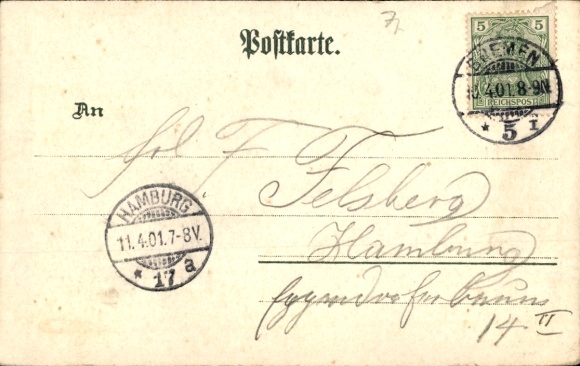 5 5
REICHSPOST
BREMEN
10.4.01.8-9N.
* 5 I
Postkarte.
An
Frl F Felsberg
Hamburg
Eppendorferbaum
14 II
HAMBURG
11.4.01.7-8V.
* 17 a